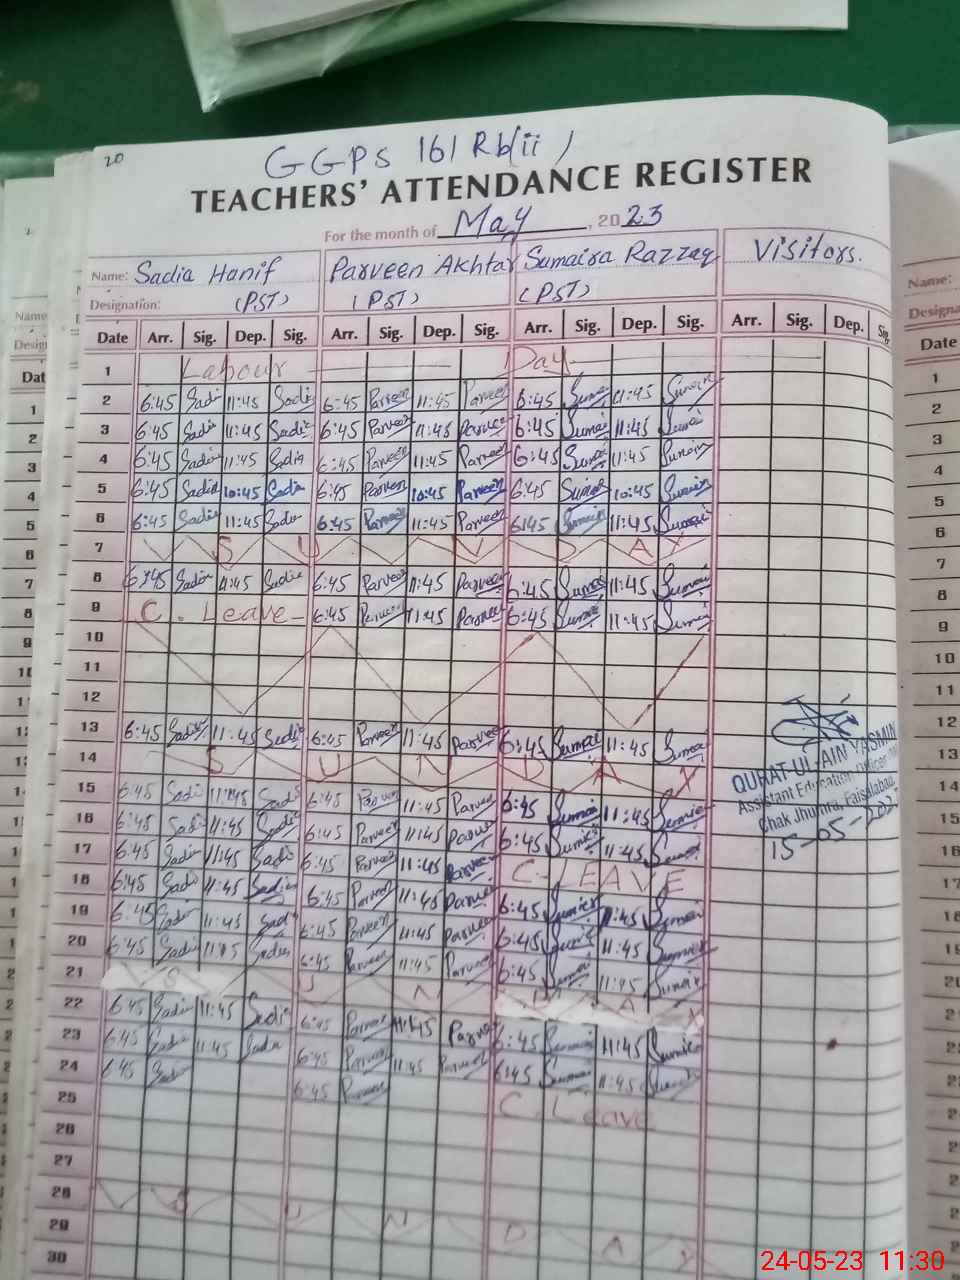 20
GGPS 161 Rb(ii)
TEACHERS' ATTENDANCE REGISTER
For the month of May, 2023
Name: Sadia Hanif Parveen Akhtar Sumaira Razzaq Visitors.
Designation: (PST) (PST) (PST)
Date Arr. Sig. Dep. Sig. Arr. Sig. Dep. Sig. Arr. Sig. Dep. Sig. Arr. Sig. Dep. Sig.
1 Labour Day
2 6:45 Sadi 11:45 Sadi 6:45 Parveen 11:45 Parveen 6:45 Sumai 11:45 Sumair
3 6:45 Sadi 11:45 Sadi 6:45 Parveen 11:45 Parveen 6:45 Sumai 11:45 Sumai
4 6:45 Sadia 11:45 Sadia 6:45 Parveen 11:45 Parveen 6:45 Sumai 11:45 Sumair
5 6:45 Sadia 10:45 Sadia 6:45 Parveen 10:45 Parveen 6:45 Sumai 10:45 Sumair
6 6:45 Sadia 11:45 Sadia 6:45 Parveen 11:45 Parveen 6:45 Sumair 11:45 Sumai
7 S U N D A Y
8 6:45 Sadia 11:45 Sadia 6:45 Parveen 11:45 Parveen 6:45 Sumai 11:45 Sumai
9 C. Leave 6:45 Parveen 11:45 Parveen 6:45 Sumai 11:45 Sumai
10
11
12
13 6:45 Sadi 11:45 Sadi 6:45 Parveen 11:45 Parveen 6:45 Sumai 11:45 Sumai
14 S U N D A Y
15 6:45 Sadi 11:45 Sadi 6:45 Parveen 11:45 Parvee 6:45 Sumai 11:45 Sumai
16 6:45 Sadi 11:45 Sadi 6:45 Parveen 11:45 Parvee 6:45 Sumai 11:45 Sumai
17 6:45 Sadi 11:45 Sadi 6:45 Parveen 11:45 Parveen C-LEAVE
18 6:45 Sadi 11:45 Sadia 6:45 Parveen 11:45 Parvee 6:45 Sumair 11:45 Sumai
19 6:45 Sadi 11:45 Sadi 6:45 Parveen 11:45 Parveen 6:45 Sumai 11:45 Sumair
20 6:45 Sadi 11:45 Sadia 6:45 Parveen 11:45 Parveen 6:45 Sumai 11:45 Sumair
21 S U N D A Y
22 6:45 Sadi 11:45 Sadi 6:45 Parveen 11:45 Parve 6:45 Sumai 11:45 Sumai
23 6:45 Sadi 11:45 Sadi 6:45 Parveen 11:45 Parveen 6:45 Sumai 11:45 Sumai
24 6:45 Sadi 6:45 Parveen
25 C. Leave
26
27
28 S U N D A Y
29
30
QURAT-UL-AIN YASMIN
Assistant Education Officer
Chak Jhumra, Faisalabad.
15-05-202
24-05-23 11:30